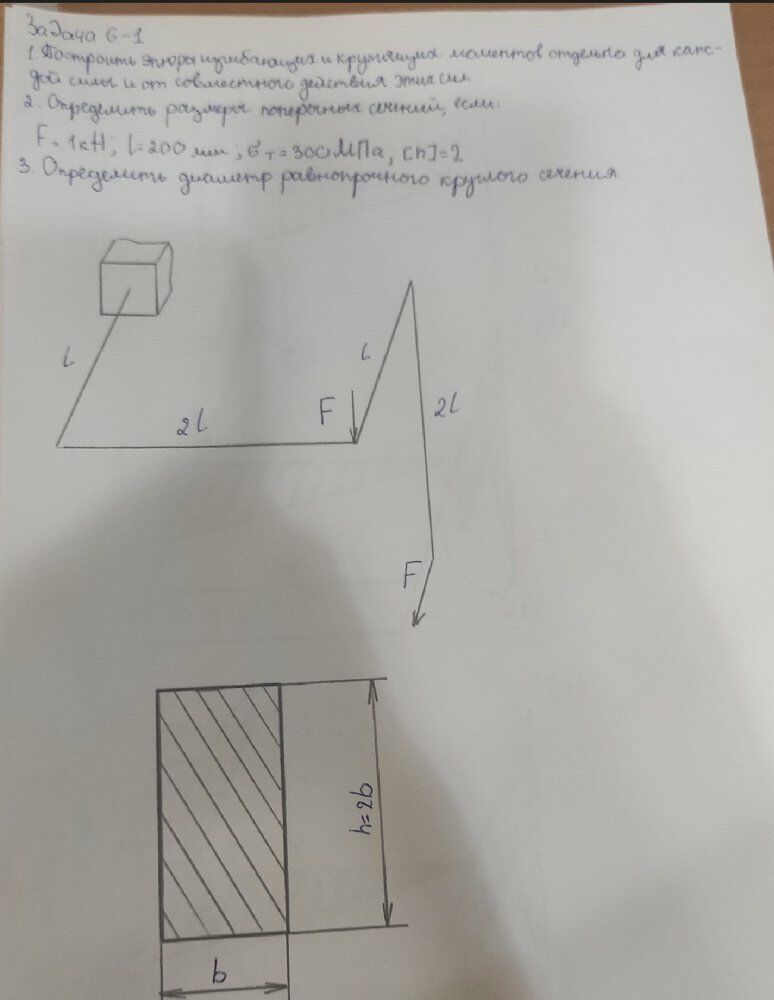 Задача 6-1
1. Построить эпюры изгибающих и крутящих моментов отдельно для каж-
дой силы и от совместного действия этих сил
2. Определить размеры поперечных сечений, если:
F = 1кН; l=200 мм; σт=300МПа, [n]=2
3. Определить диаметр равнопрочного круглого сечения
l
l
2l
F
2l
F
h=2b
b